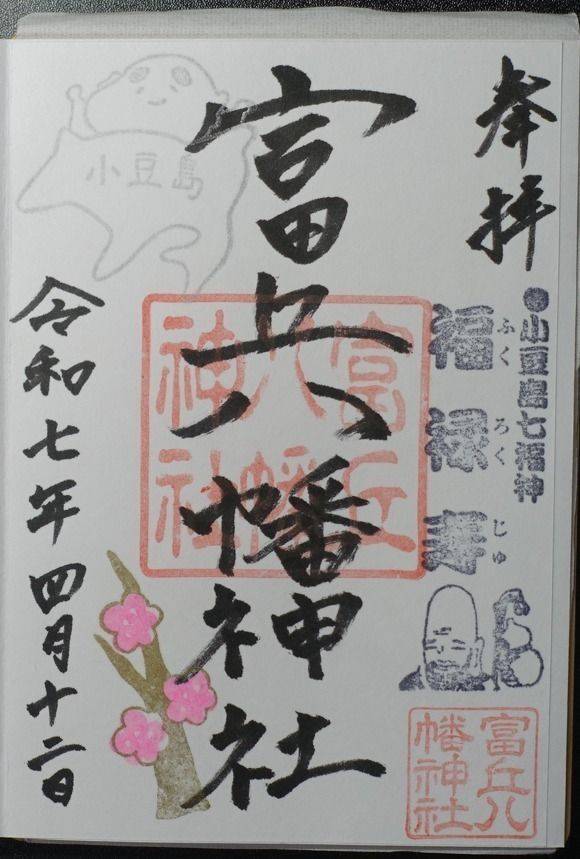 奉拝
●小豆島七福神
福禄寿
ふくろくじゅ
富丘八
幡神社
富丘八幡神社
富丘
八幡
神社
小豆島
令和七年四月十二日